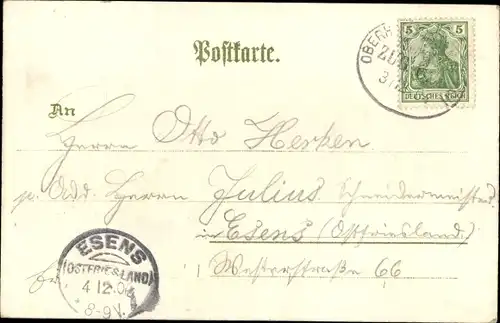 Postkarte.
5 5
DEUTSCHES REICH
An
Herrn Otto Herken
p. Add. Herrn Julius Schneidermeister
in Esens (Ostfriesland)
Westerstraße 66
ESENS
(OSTFRIESLAND)
4 12.0
8-9V.